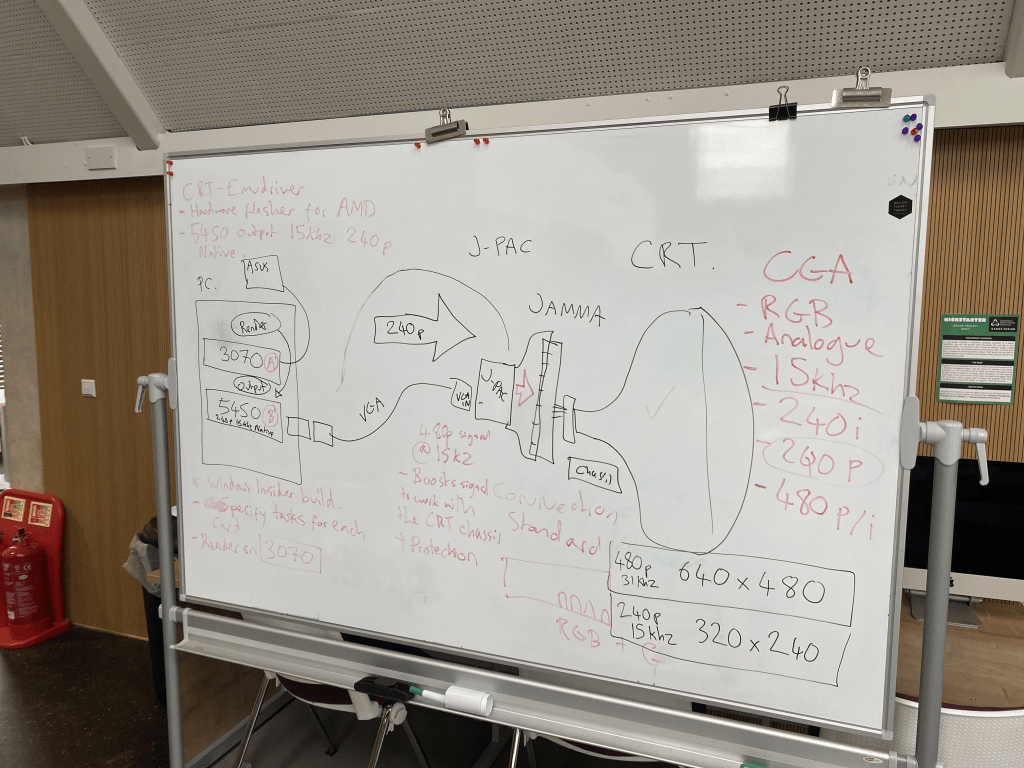 CRT-Emudriver
- Hardware flasher for AMD
- 5450 output 15khz 240p
Native.
PC.
ASUS
Render
3070 A
Output
5450 B
240p 15khz Native
* Window Insider build.
- Specify tasks for each
Card
- Render on 3070
J-PAC
240p
VGA
VGA IN
J-PAC
JAMMA
480p signal
@ 15kz
- Boosts signal
to work with
the CRT chassis
+ Protection
Connection
Standard
RGB + G
CRT.
Chassis
480p
31khz
640 x 480
240p
15khz
320 x 240
CGA
- RGB
- Analogue
- 15khz
- 240i
- 240p
- 480 p/i
KICKSTARTER